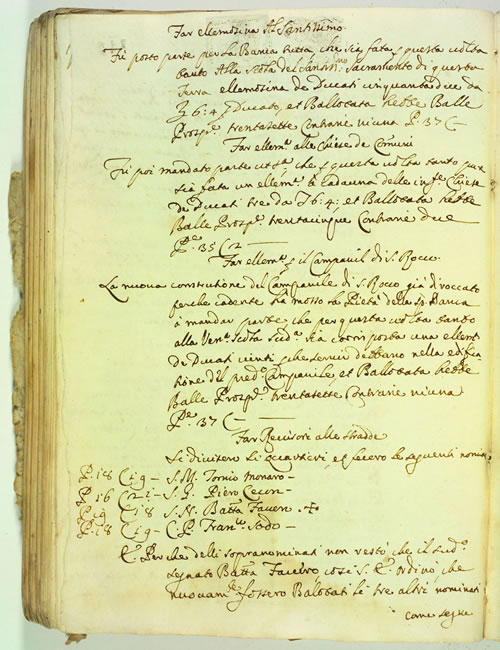 Far ellemosina Al Santissimo
Fù posto parte per la Banca stessa che sia fata p questa volta
tanto Alla Scola del Santiss.mo Sacramento di questa
Terra ellemosina de Ducati cinquantadue da
£ 6:4 p Ducato, et Ballotata hebbe Balle
Prosp.e trentasette Contrarie niuna P. 37 C —
Far ellem.a alle Chiese de Comuni
Fù poi mandato parte che p questa volta tanto pur
sia fata un ellem.a à cadauna delle Chiese
de Ducati tre da £ 6:4: et Ballotata hebbe
Balle Prosp.e trentacinque Contrarie due
P.e 35 C 2 —
Far ellem.a p il Campanil di S. Rocco
La nuova construtione del Campanile di S. Rocco già diroccato
perche cadente ha mosso la Pietà della Banca
à mandar parte che per questa volta tanto
alla Ven. Scola sud.a sia corrisposta una ellem.
de Ducati vinti, che servir debbano nella edifica
tione del pred.o Campanile, et Ballotata hebbe
Balle Prosp.e trentasette Contrarie niuna
P.e 37 C —
Far Revisori alle stradde
Si divisero li quartieri, et fecero le seguenti nomine
P. 18 C 19 — S. M. Tonio
P. 16 C 21 — S. Piero
P. 19 C 18 S. Batta Favero
P. 18 C 19 — C. P. Fran.co Sodo —
Perche delli sopranominati non restò, che il sud.o
segnato Batta Favero così S. E. ordinò, che
nuovam.te fossero Balotati li tre altri nominati
come segue